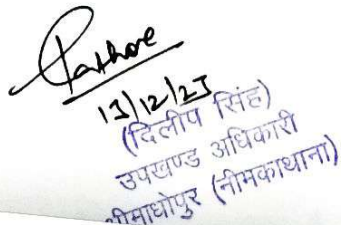 Rathore
13/12/23
(दिलीप सिंह)
उपखण्ड अधिकारी
श्रीमाधोपुर (नीमकाथाना)